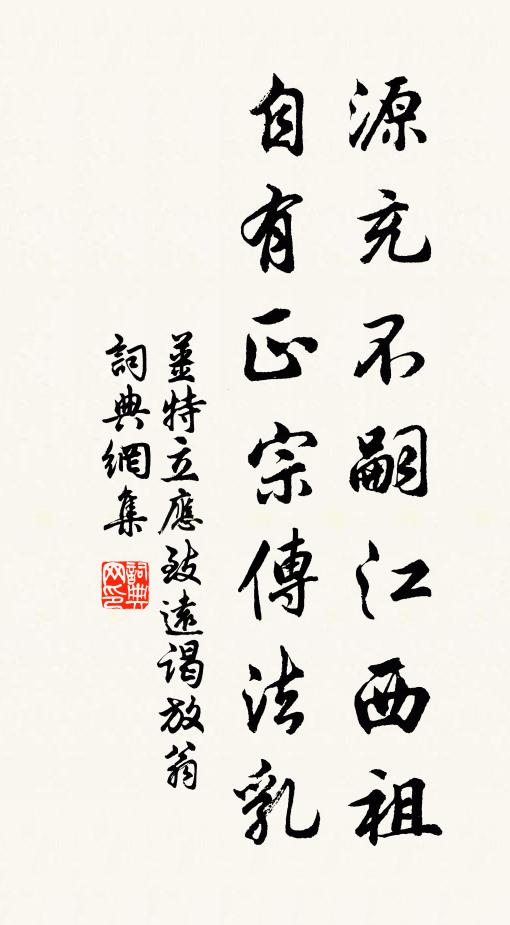 源充不嗣江西祖
自有正宗傳法乳
姜特立應致遠謁放翁
詞典網集
詞典
网印